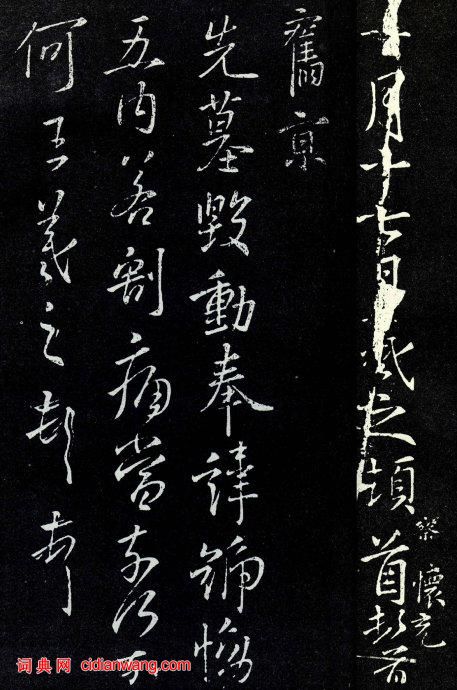 月十七日羲之頓首頓首
察
懷充
舊京
先墓毀動奉諱號惋
五內若割痛當奈何奈
何王羲之頓首
词典网 cidianwang.com